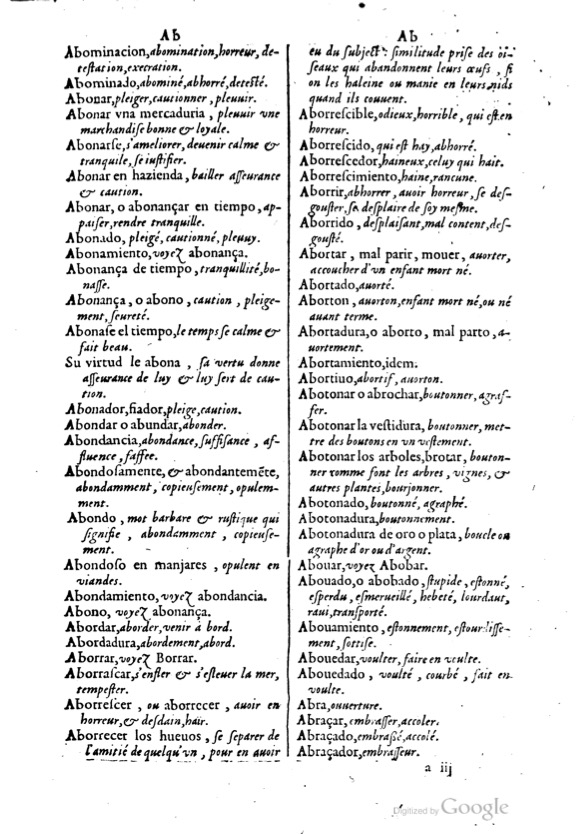 Ab
Abominacion, abomination, horreur, de-
testation, execration.
Abominado, abominé, abhorré, detesté.
Abonar, pleiger, cautionner, pleuuir.
Abonar vna mercaduria, pleuuir vne
marchandise bonne & loyale.
Abonarse, s'ameliorer, deuenir calme &
tranquile, se iustifier.
Abonar en hazienda, bailler asseurance
& caution.
Abonar, o abonançar en tiempo, ap-
paiser, rendre tranquille.
Abonado, pleigé, cautionné, pleuuy.
Abonamiento, voyez abonança.
Abonança de tiempo, tranquillité, bo-
nasse.
Abonança, o abono, caution, pleige-
ment, seureté.
Abonase el tiempo, le temps se calme &
fait beau.
Su virtud le abona, sa vertu donne
asseurance de luy & luy sert de cau-
tion.
Abonador, fiador, pleige, caution.
Abondar o abundar, abonder.
Abondancia, abondance, suffisance, af-
fluence, saffee.
Abondosamente, & abondantemẽte,
abondamment, copieusement, opulem-
ment.
Abondo, mot barbare & rustique qui
signifie, abondamment, copieuse-
ment.
Abondoso en manjares, opulent en
viandes.
Abondamiento, voyez abondancia.
Abono, voyez abonança.
Abordar, aborder, venir à bord.
Abordadura, abordement, abord.
Aborrar, voyez Borrar.
Aborrascar, s'enfler & s'esleuer la mer,
tempester.
Aborrescer, ou aborrecer, auoir en
horreur, & desdain, haïr.
Aborrecer los hueuos, se separer de
l'amitié de quelqu'vn, pour en auoir
Ab
eu du subject: similitude prise des oi-
seaux qui abandonnent leurs œufs, si
on les haleine ou manie en leurs nids
quand ils couuent.
Aborrescible, odieux, horrible, qui est en
horreur.
Aborrescido, qui est hay, abhorré.
Aborrescedor, haineux, celuy qui hait.
Aborrescimiento, haine, rancune.
Aborrir, abhorrer, auoir horreur, se des-
gouster, se desplaire de soy mesme.
Aborrido, desplaisant, mal content, des-
gousté.
Abortar, mal parir, mouer, auorter,
accoucher d'vn enfant mort né.
Abortado, auorté.
Aborton, auorton, enfant mort né, ou né
auant terme.
Abortadura, o aborto, mal parto, a-
uortement.
Abortamiento, idem.
Abortiuo, abortif, auorton.
Abotonar o abrochar, boutonner, agraf-
fer.
Abotonar la vestidura, boutonner, met-
tre des boutons en vn vestement.
Abotonar los arboles, brotar, bouton-
ner comme font les arbres, vignes, &
autres plantes, bourjonner.
Abotonado, boutonné, agraphé.
Abotonadura, boutonnement.
Abotonadura de oro o plata, boucle ou
agraphe d'or ou d'argent.
Abouar, voyez Abobar.
Abouado, o abobado, stupide, estonné,
esperdu, esmerueillé, hebeté, lourdaut,
raui, transporté.
Abouamiento, estonnement, estourdisse-
ment, sottise.
Abouedar, voulter, faire en voulte.
Abouedado, voulté, courbé, fait en
voulte.
Abra, ouuerture.
Abraçar, embrasser, accoler.
Abraçado, embrassé, accolé.
Abraçador, embrasseur.
a iij
Digitized by Google